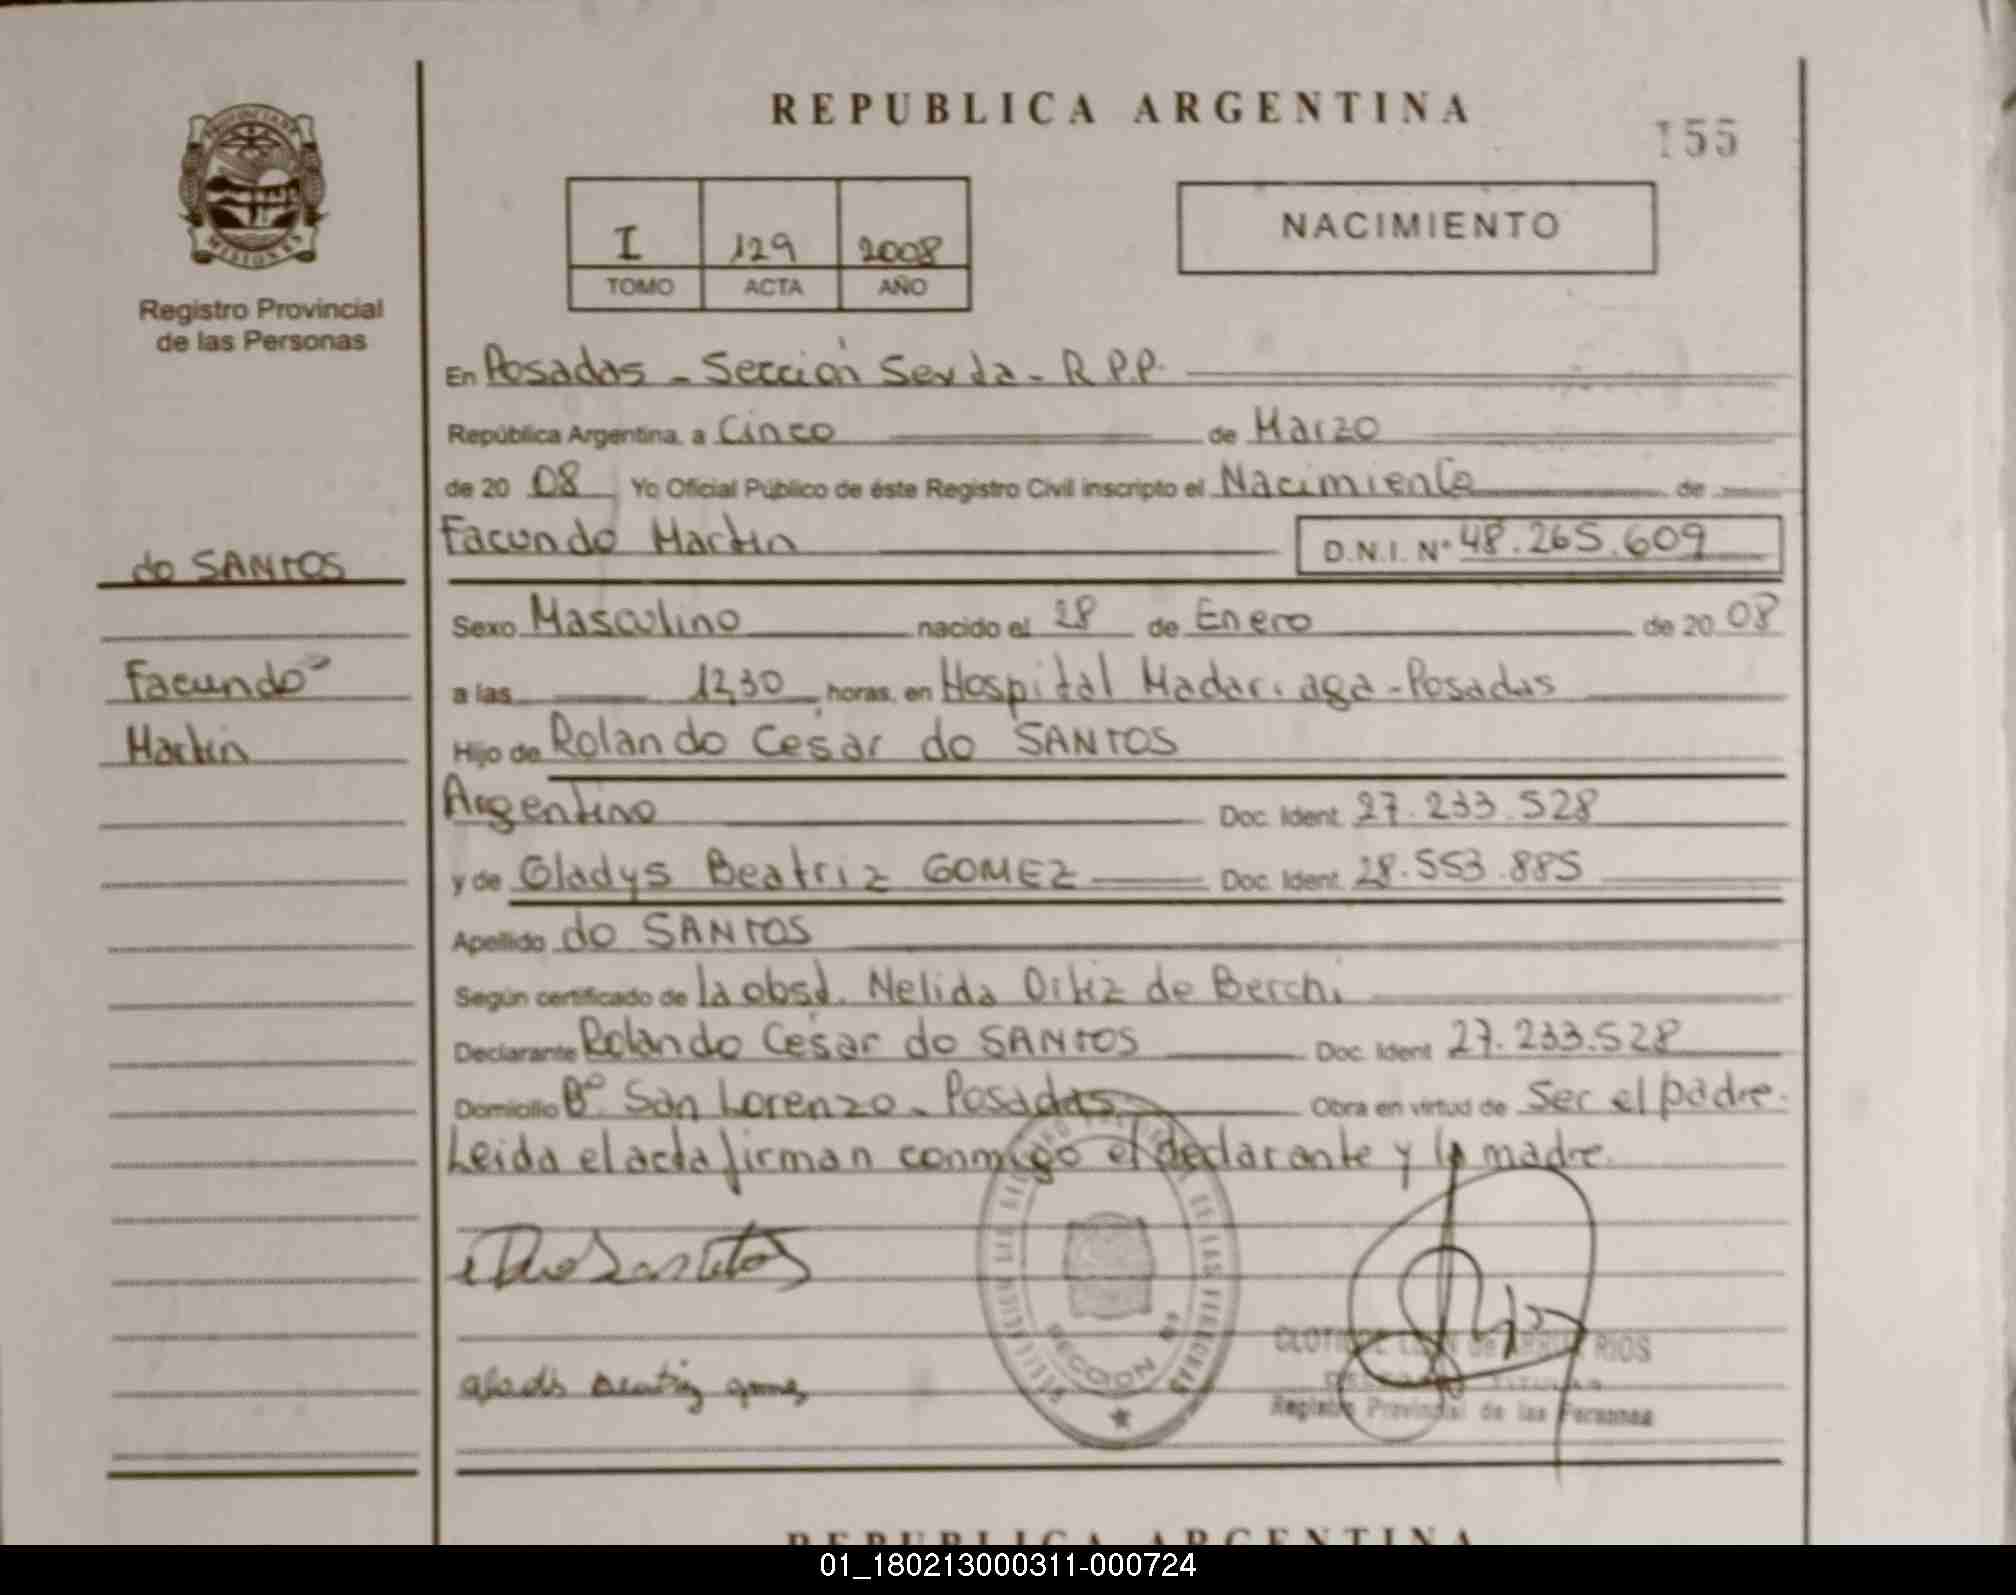 REPUBLICA ARGENTINA
155
PROVINCIA DE
MISIONES
Registro Provincial
de las Personas
I 129 2008
TOMO ACTA AÑO
NACIMIENTO
En Posadas - Sección Sexta - R.P.P.
República Argentina, a Cinco de Marzo
de 20 08 Yo Oficial Público de éste Registro Civil inscripto el Nacimiento de
do SANTOS
Facundo Martin D.N.I. Nº 48.265.609
Sexo Masculino nacido el 28 de Enero de 20 08
Facundo
a las 12,30 horas, en Hospital Madariaga - Posadas
Martin
Hijo de Rolando César do SANTOS
Argentino Doc. Ident. 27.233.528
y de Gladys Beatriz GOMEZ Doc. Ident. 28.553.885
Apellido do SANTOS
Según certificado de la obst. Nelida Ortiz de Berchi
Declarante Rolando César do SANTOS Doc. Ident 27.233.528
Domicilio Bº San Lorenzo - Posadas Obra en virtud de Ser el padre.
Leida el acta firman conmigo el declarante y la madre.
SECCION
RIOS
TITULAR
Registro Provincial de las Personas
REPUBLICA ARGENTINA
01_180213000311-000724